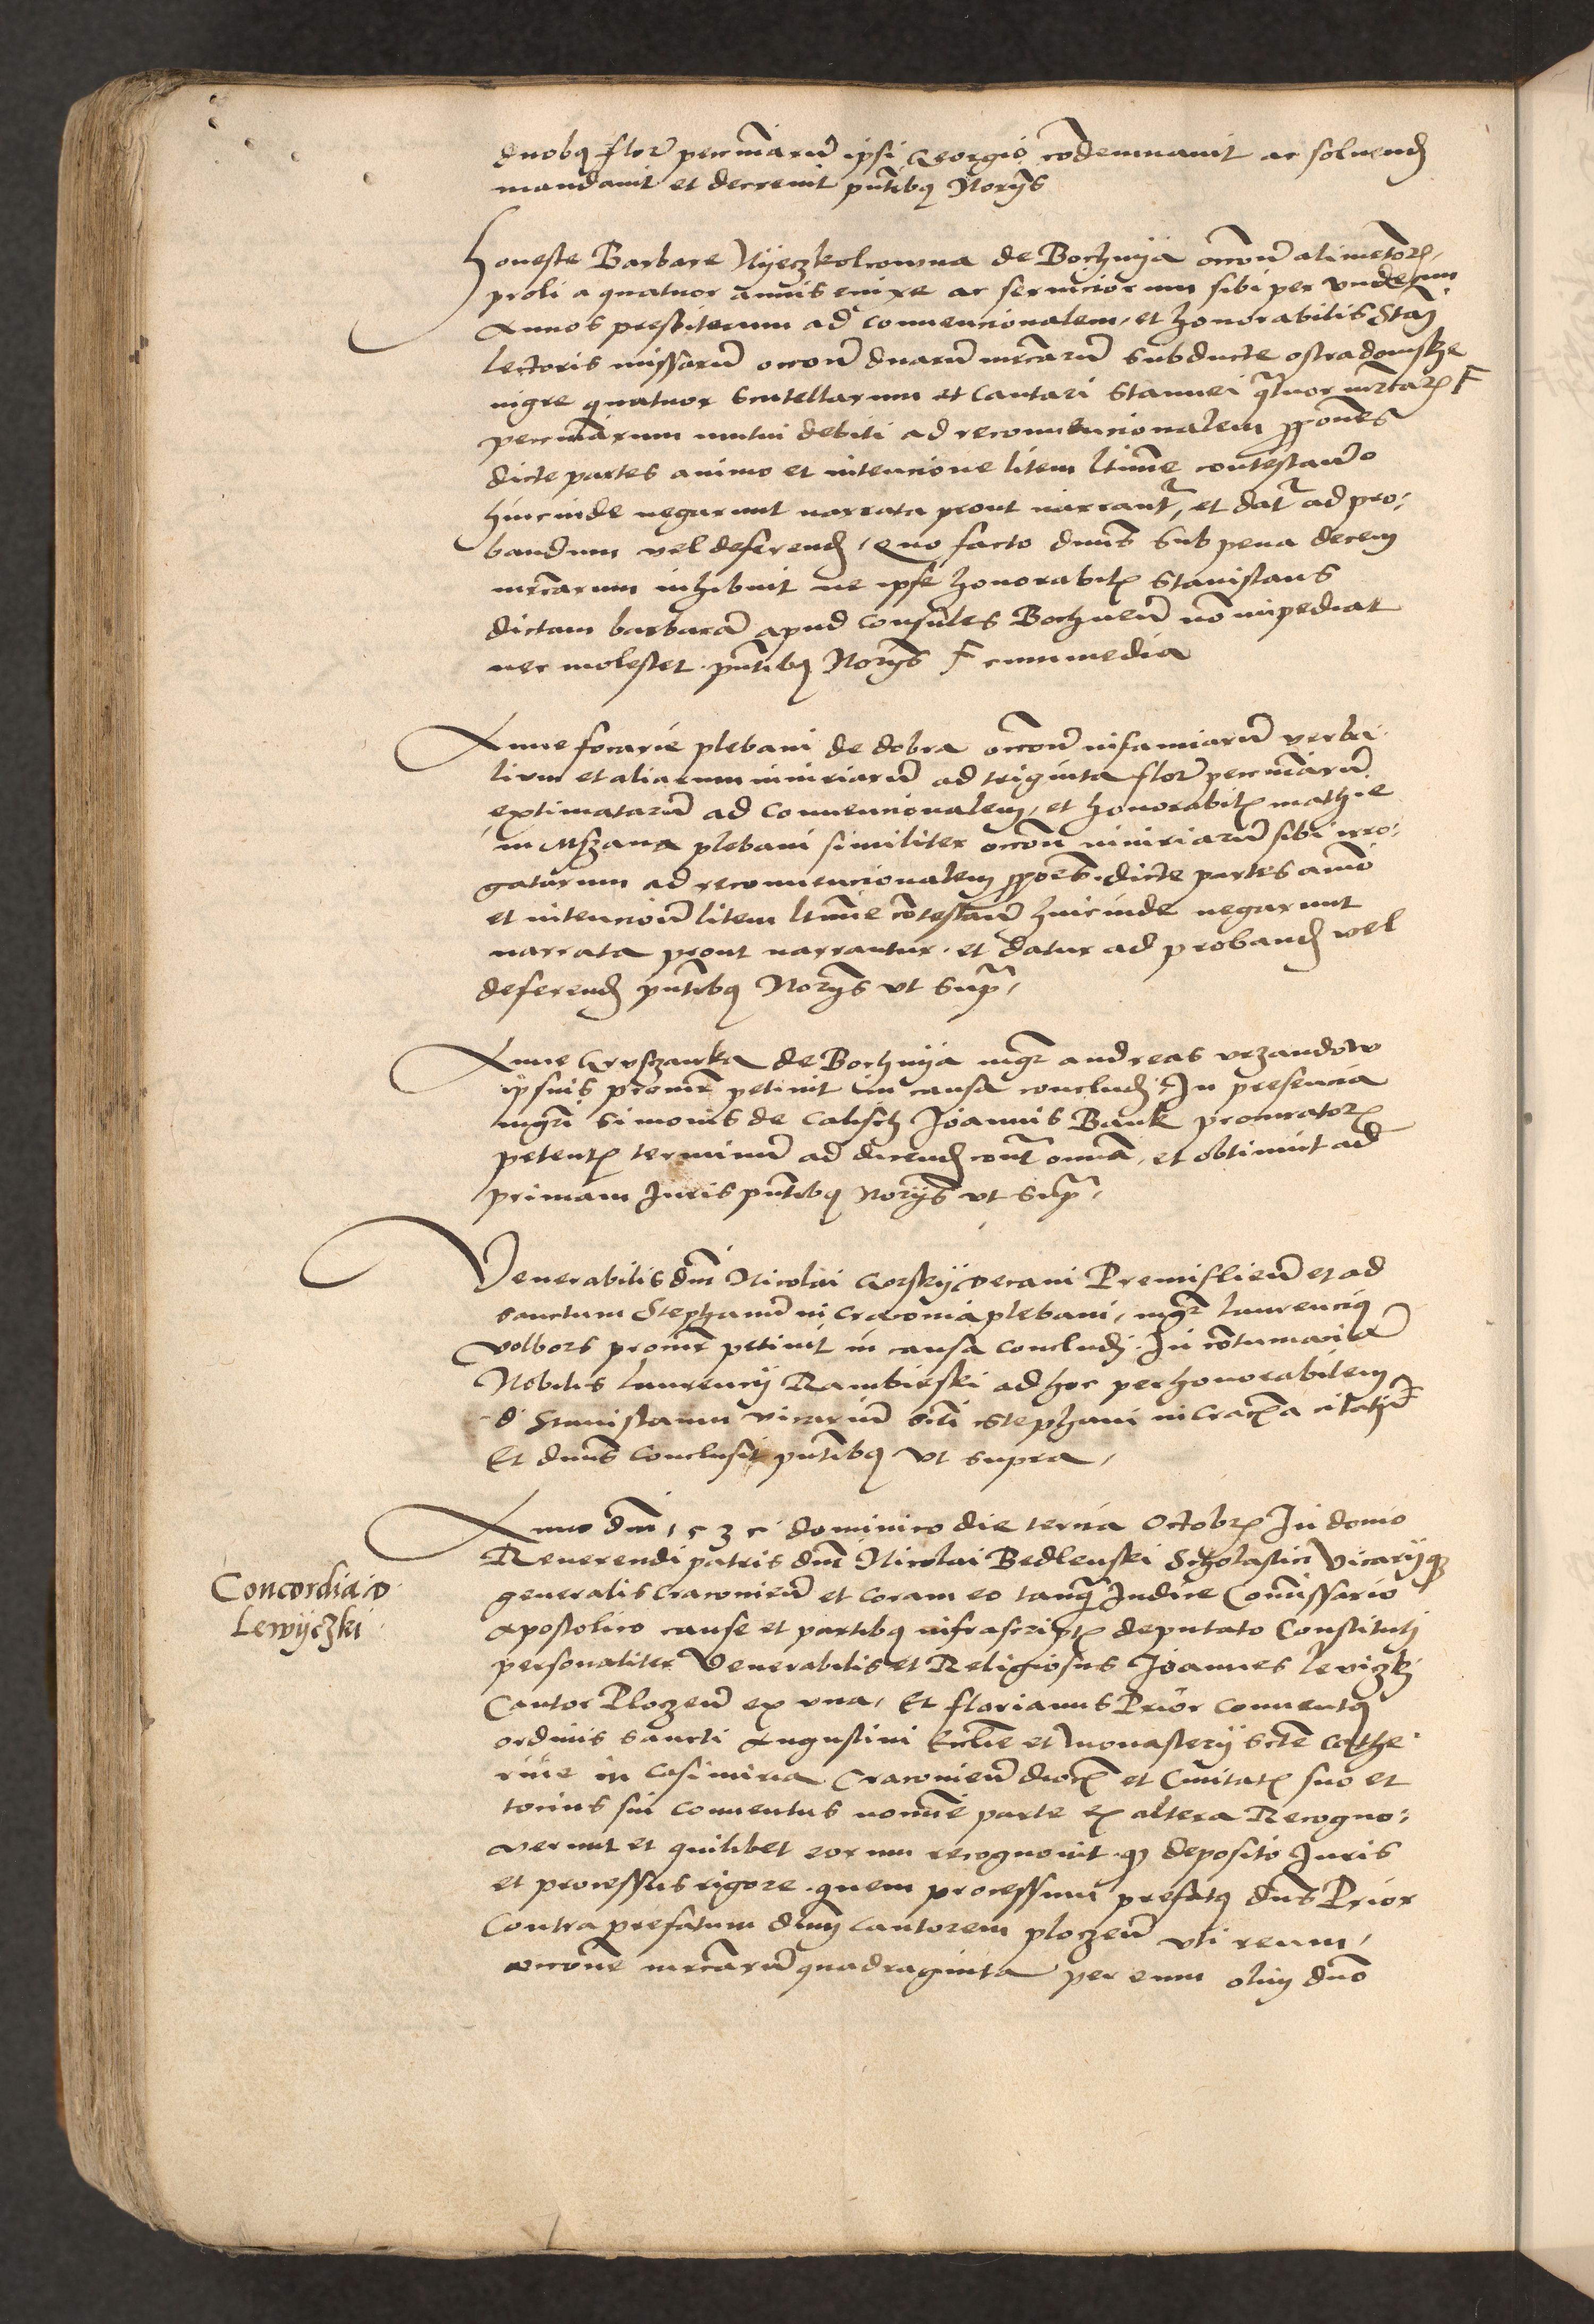 duobq flor pecuniaru ipsi Georgio condemnauit ac soluend
mandauit et decreuit pntibq Norijs
Honeste Barbare Nijeczkolcowna de Bochnija occone alimetor,
proli a quatuor annis enixe ac seruiciorum sibi per vndecim
Annos prestitorum ad conuencionalem, et honorabilis Stan
lectoris missaru occone duaru mrcaru subducte ostradomske
nigre quatuor scutellarum et cantari stannei qtuor mrcar F
pecuniarum mutui debiti ad reconuencionalem ppones
dicte partes animo et intencione litem ltime contestando
hincinde negarunt narrata prout narrant, et dat ad pro:
bandum vel deferend, Quo facto dnus sub pena decem
mrcarum inhibuit ne ipse honorabil Stanislaus
dictam barbara apud consules Bochnen no impediat
nec molestet. pntibq Norijs F cum media
Anne focarie plebani de dobra occone infamiaru verba
lium et aliarum iniuriaru ad triginta flor pecuniaru
extimataru ad conuencionalem, et honorabil mathie
in Mszana plebani similiter occone iniuriaru sibi irro:
gatarum ad reconuencionalem ppoes. dicte partes aimo
et intencion litem ltime contestan hincinde negarunt
narrata prout narrantur. et datur ad proband vel
deferend pntibq Norijs vt supra,
Anne Gryszanka de Bochnija mgr andreas vrzandow
ipsius procur petiuit in causa concludi. In presencia
mgri simonis de Calisch Joannis Bank procurator
petent terminu ad dicend cont omnia, et obtinuit ad
primam Juris pntibq Norijs vt supra,
Venerabilis dni Nicolai Gorskij decani Premislien et ad
sanctum Stephanu in Cracouia plebani, mgr laurencius
volbors procur petiuit in causa concludi. In contumacia
Nobilis laurencij Rambieski ad hoc per honorabilem
d Stanislaum vicariu scti Stephani in Crac a citati
Et dnus conclusit pntibq vt supra,
Anno dni 1535 dominico die tercia Octobr In domo
Reuerendi patris dni Nicolai Bedlenski Scholastici Vicarijq
generalis Cracouien et coram eo tanq Judice Comissario
apostolico cause et partibq infrascript deputato Constituti
personaliter Venerabilis et Religiosus Joannes leviczki
Cantor Ploczen ex vna, Et florianus Prior conuentq
ordinis sancti Augustini Ecclie et monasterij scte Cathe
rine in Casimiria Cracouien dioc et Ciuitat suo et
tocius sui conuentus nomine parte ex altera Recogno:
verunt et quilibet eorum recognouit. q deposito Juris
et processus rigore. quem processum prefatq dns Prior
Contra prefatum dnum cantorem ploczen vti reum,
occone mrcaru quadraginta per eum olim dno
Concordia d
Lewijczki